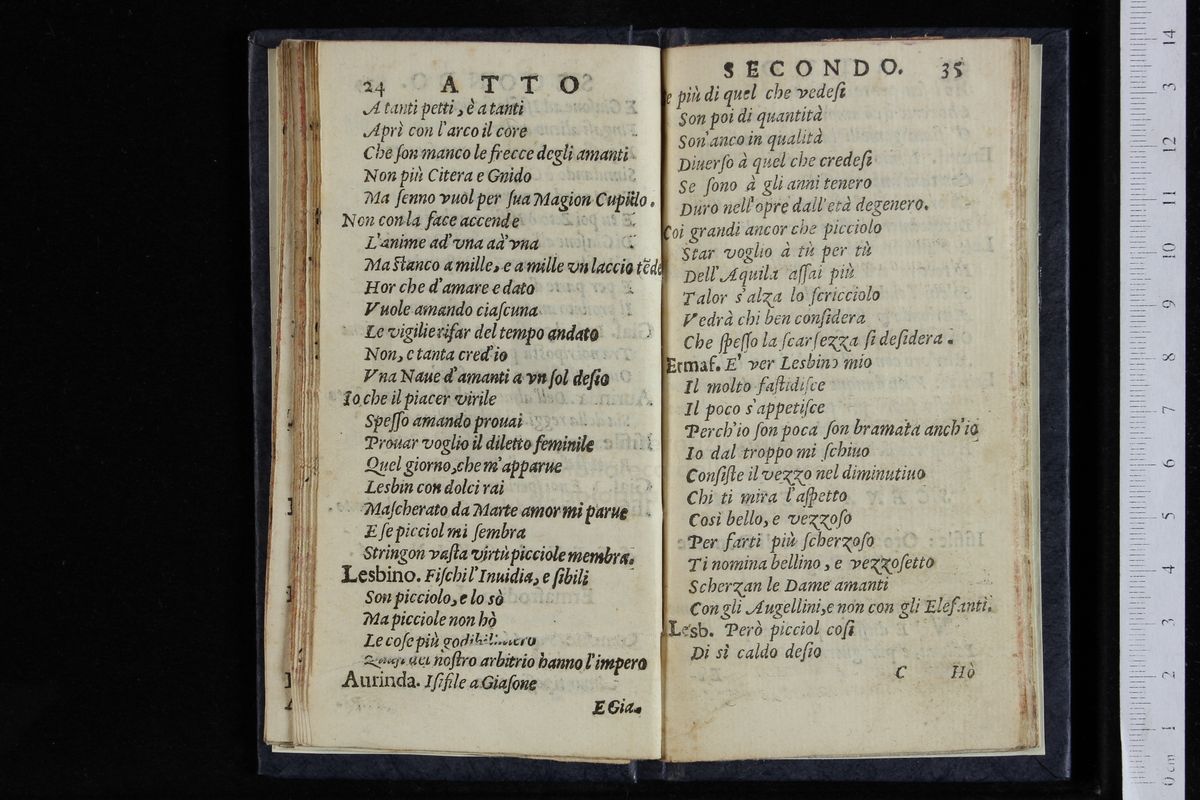 24 ATTO
A tanti petti, è a tanti
Aprì con l'arco il core
Che ſon manco le frecce degli amanti
Non più Citera e Gnido
Ma ſenno vuol per ſua Magion Cupido.
Non con la face accende
L'anime ad'vna ad'vna
Ma ſtanco a mille, e a mille vn laccio tẽde
Hor che d'amare e dato
Vuole amando ciaſcuna
Le vigilie rifar del tempo andato
Non, e tanta cred'io
Vna Naue d'amanti a vn ſol deſio
Io che il piacer virile
Speſſo amando prouai
Prouar voglio il diletto feminile
Quel giorno, che m'apparue
Lesbin con dolci rai
Maſcherato da Marte amor mi parue
E ſe picciol mi ſembra
Stringon vaſta virtù picciole membra.
Lesbino. Fiſchi l'Inuidia, e ſibili
Son picciolo, e lo sò
Ma picciole non hò
Le coſe più
dei noſtro arbitrio hanno l'impero
Aurinda. Iſifile a Giaſone
E Gia.
SECONDO. 35
e più di quel che vedeſi
Son poi di quantità
Son'anco in qualità
Diuerſo à quel che credeſi
Se ſono à gli anni tenero
Duro nell'opre dall'età degenero.
Coi grandi ancor che picciolo
Star voglio à tù per tù
Dell'Aquila aſſai più
Talor s'alza lo ſcricciolo
Vedrà chi ben conſidera
Che ſpeſſo la ſcarſezza ſi deſidera.
Ermaf. E' ver Lesbino mio
Il molto faſtidiſce
Il poco s'appetiſce
Perch'io ſon poca ſon bramata anch'io
Io dal troppo mi ſchiuo
Conſiſte il vezzo nel diminutiuo
Chi ti mira l'aſpetto
Così bello, e vezzoſo
Per farti più ſcherzoſo
Ti nomina bellino, e vezzoſetto
Scherzan le Dame amanti
Con gli Augellini, e non con gli Elefanti.
Lesb. Però picciol coſi
Di sì caldo deſio
C Hò